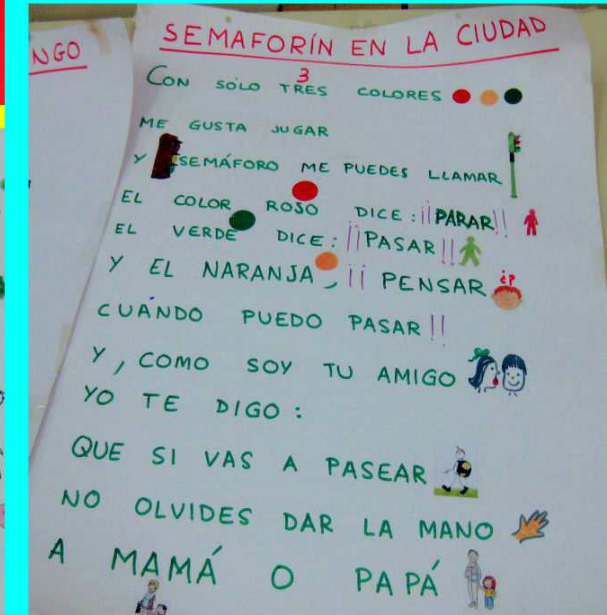 NGO
SEMAFORÍN EN LA CIUDAD
3
CON SÓLO TRES COLORES
ME GUSTA JUGAR
Y SEMÁFORO ME PUEDES LLAMAR
EL COLOR ROJO DICE: ¡¡PARAR!!
EL VERDE DICE: ¡¡PASAR!!
Y EL NARANJA, ¡¡ PENSAR ¿?
CUÁNDO PUEDO PASAR!!
Y, COMO SOY TU AMIGO
YO TE DIGO:
QUE SI VAS A PASEAR
NO OLVIDES DAR LA MANO
A MAMÁ O PAPÁ